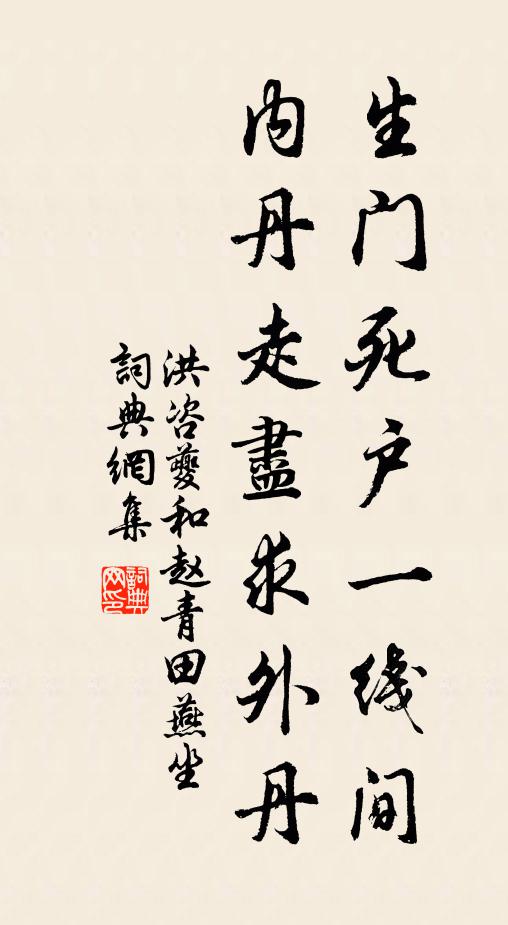 生门死户一线间
内丹走盡求外丹
洪咨夔和赵青田燕坐
詞典網集
詞典網印